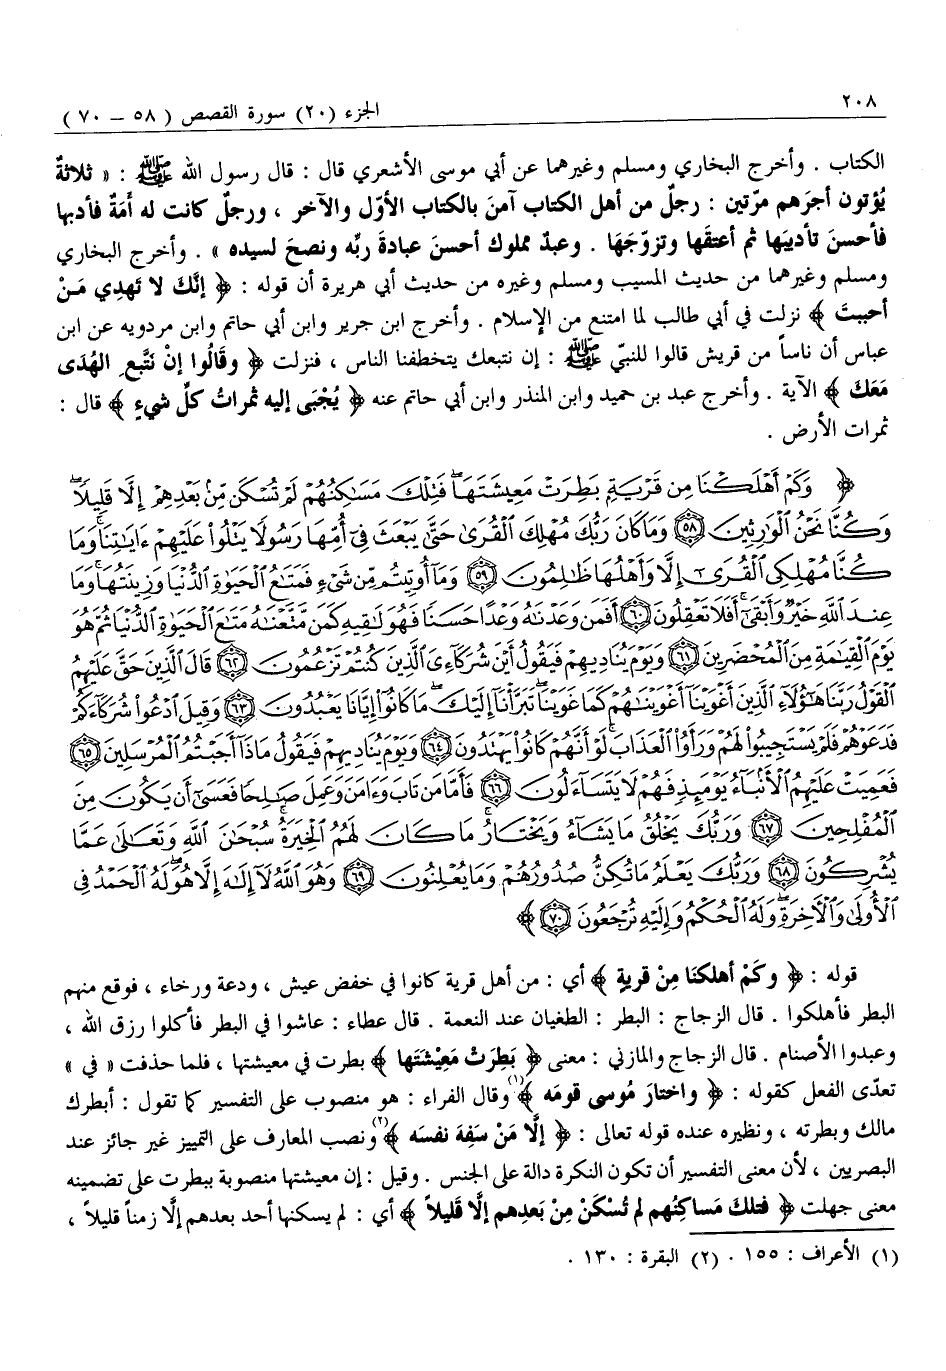 ٢٠٨
الجزء (٢٠) سورة القصص ( ٥٨ – ٧٠ )
الكتاب . وأخرج البخاري ومسلم وغيرهما عن أبي موسى الأشعري قال : قال رسول الله ﷺ : « ثلاثةٌ
يُؤتون أجرَهم مرّتين : رجلٌ من أهل الكتاب آمنَ بالكتاب الأوّل والآخر ، ورجلٌ كانت له أَمَةٌ فأدبها
فأحسنَ تأديبَها ثم أعتقَها وتزوّجَهَا . وعبدٌ مملوك أحسنَ عبادةَ ربِّه ونصحَ لسيده » . وأخرج البخاري
ومسلم وغيرهما من حديث المسيب ومسلم وغيره من حديث أبي هريرة أن قوله : ﴿ إنَّكَ لا تَهدِي مَنْ
أحببتَ ﴾ نزلت في أبي طالب لما امتنع من الإسلام . وأخرج ابن جرير وابن أبي حاتم وابن مردويه عن ابن
عباس أن ناساً من قريش قالوا للنبيّ ﷺ : إن نتبعك يتخطفنا الناس ، فنزلت ﴿ وقَالُوا إنْ نَتَّبعِ الهُدَى
مَعَكَ ﴾ الآية . وأخرج عبد بن حميد وابن المنذر وابن أبي حاتم عنه ﴿ يُجْبَى إليه ثمراتُ كلّ شيءٍ ﴾ قال :
ثمرات الأرض .
﴿ وَكَمْ أَهْلَكْنَا مِن قَرْيَةٍ بَطِرَتْ مَعِيشَتَهَا ۖ فَتِلْكَ مَسَاكِنُهُمْ لَمْ تُسْكَن مِّنۢ بَعْدِهِمْ إِلَّا قَلِيلًا ۖ
وَكُنَّا نَحْنُ الْوَارِثِينَ ﴿٥٨﴾ وَمَا كَانَ رَبُّكَ مُهْلِكَ الْقُرَىٰ حَتَّىٰ يَبْعَثَ فِي أُمِّهَا رَسُولًا يَتْلُوا عَلَيْهِمْ ءَايَاتِنَا ۚ وَمَا
كُنَّا مُهْلِكِي الْقُرَىٰ إِلَّا وَأَهْلُهَا ظَالِمُونَ ﴿٥٩﴾ وَمَا أُوتِيتُم مِّن شَيْءٍ فَمَتَاعُ الْحَيَوٰةِ الدُّنْيَا وَزِينَتُهَا ۚ وَمَا
عِندَ اللَّهِ خَيْرٌ وَأَبْقَىٰ ۚ أَفَلَا تَعْقِلُونَ ﴿٦٠﴾ أَفَمَن وَعَدْنَاهُ وَعْدًا حَسَنًا فَهُوَ لَاقِيهِ كَمَن مَّتَّعْنَاهُ مَتَاعَ الْحَيَوٰةِ الدُّنْيَا ثُمَّ هُوَ
يَوْمَ الْقِيَامَةِ مِنَ الْمُحْضَرِينَ ﴿٦١﴾ وَيَوْمَ يُنَادِيهِمْ فَيَقُولُ أَيْنَ شُرَكَاءِيَ الَّذِينَ كُنتُمْ تَزْعُمُونَ ﴿٦٢﴾ قَالَ الَّذِينَ حَقَّ عَلَيْهِمُ
الْقَوْلُ رَبَّنَا هَٰؤُلَاءِ الَّذِينَ أَغْوَيْنَا أَغْوَيْنَاهُمْ كَمَا غَوَيْنَا ۖ تَبَرَّأْنَا إِلَيْكَ ۖ مَا كَانُوا إِيَّانَا يَعْبُدُونَ ﴿٦٣﴾ وَقِيلَ ادْعُوا شُرَكَاءَكُمْ
فَدَعَوْهُمْ فَلَمْ يَسْتَجِيبُوا لَهُمْ وَرَأَوُا الْعَذَابَ ۚ لَوْ أَنَّهُمْ كَانُوا يَهْتَدُونَ ﴿٦٤﴾ وَيَوْمَ يُنَادِيهِمْ فَيَقُولُ مَاذَا أَجَبْتُمُ الْمُرْسَلِينَ ﴿٦٥﴾
فَعَمِيَتْ عَلَيْهِمُ الْأَنبَاءُ يَوْمَئِذٍ فَهُمْ لَا يَتَسَاءَلُونَ ﴿٦٦﴾ فَأَمَّا مَن تَابَ وَءَامَنَ وَعَمِلَ صَالِحًا فَعَسَىٰ أَن يَكُونَ مِنَ
الْمُفْلِحِينَ ﴿٦٧﴾ وَرَبُّكَ يَخْلُقُ مَا يَشَاءُ وَيَخْتَارُ ۗ مَا كَانَ لَهُمُ الْخِيَرَةُ ۚ سُبْحَانَ اللَّهِ وَتَعَالَىٰ عَمَّا
يُشْرِكُونَ ﴿٦٨﴾ وَرَبُّكَ يَعْلَمُ مَا تُكِنُّ صُدُورُهُمْ وَمَا يُعْلِنُونَ ﴿٦٩﴾ وَهُوَ اللَّهُ لَا إِلَٰهَ إِلَّا هُوَ ۖ لَهُ الْحَمْدُ فِي
الْأُولَىٰ وَالْآخِرَةِ ۖ وَلَهُ الْحُكْمُ وَإِلَيْهِ تُرْجَعُونَ ﴿٧٠﴾ ﴾
قوله : ﴿ وكَمْ أهلكنَا مِنْ قريةٍ ﴾ أي : من أهل قرية كانوا في خفض عيش ، ودعة ورخاء ، فوقع منهم
البطر فأهلكوا . قال الزجاج : البطر : الطغيان عند النعمة . قال عطاء : عاشوا في البطر فأكلوا رزق الله ،
وعبدوا الأصنام . قال الزجاج والمازني : معنى ﴿ بَطِرَتْ مَعِيْشَتَها ﴾ بطرت في معيشتها ، فلما حذفت « في »
تعدّى الفعل كقوله : ﴿ واختارَ مُوسى قومَه ﴾(١) وقال الفراء : هو منصوب على التفسير كما تقول : أبطرك
مالك وبطرته ، ونظيره عنده قوله تعالى : ﴿ إلَّا مَنْ سَفِهَ نفسَه ﴾(٢) ونصب المعارف على التمييز غير جائز عند
البصريين ، لأن معنى التفسير أن تكون النكرة دالة على الجنس . وقيل : إن معيشتها منصوبة ببطرت على تضمينه
معنى جهلت ﴿ فتلكَ مَساكِنُهم لم تُسْكَنْ مِنْ بَعدِهم إلَّا قَليلاً ﴾ أي : لم يسكنها أحد بعدهم إلَّا زمناً قليلاً ،
(١) الأعراف : ١٥٥ . (٢) البقرة : ١٣٠ .